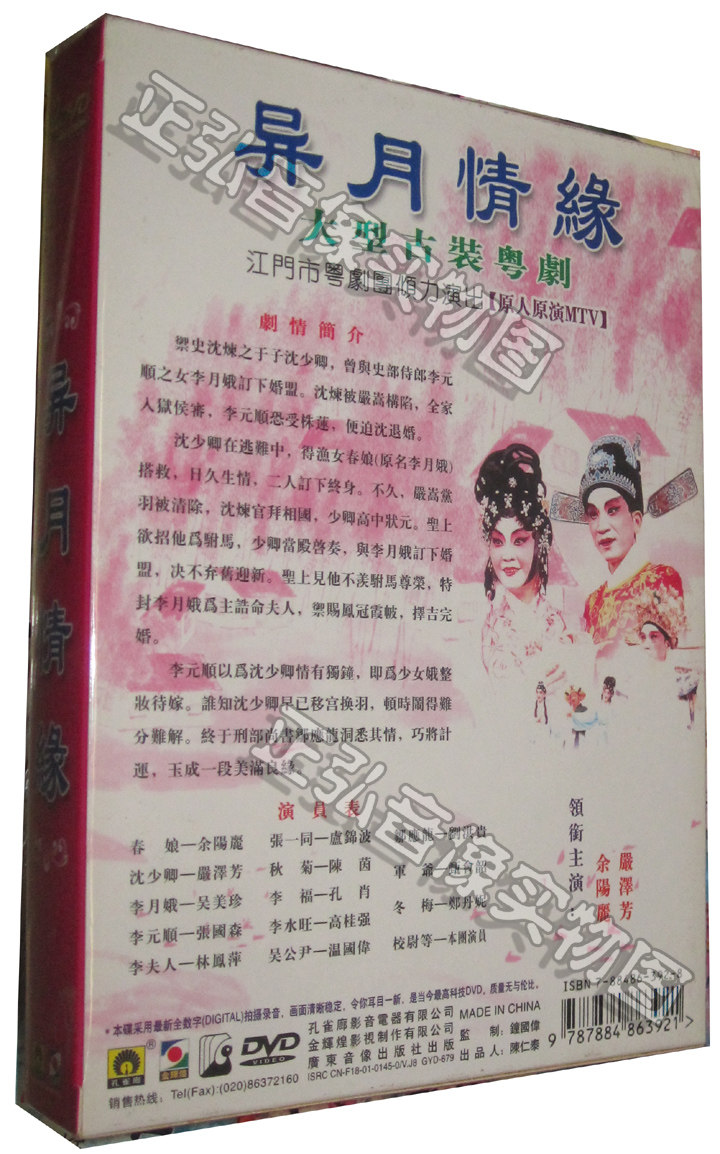 異月情緣
大型古裝粵劇
江門市粵劇團傾力演出【原人原演MTV】
劇情簡介
禦史沈煉之于子沈少卿，曾與史部侍郎李元
順之女李月娥訂下婚盟。沈煉被嚴嵩構陷，全家
入獄侯審，李元順恐受株蓮，便迫沈退婚。
沈少卿在逃難中，得漁女春娘(原名李月娥)
搭救，日久生情，二人訂下終身。不久，嚴嵩黨
羽被清除，沈煉官拜相國，少卿高中狀元。聖上
欲招他爲駙馬，少卿當殿啓奏，與李月娥訂下婚
盟，决不弃舊迎新。聖上見他不羨駙馬尊榮，特
封李月娥爲主誥命夫人，禦賜鳳冠霞帔，擇吉完
婚。
李元順以爲沈少卿情有獨鐘，即爲少女娥整
妝待嫁。誰知沈少卿早已移宫换羽，頓時鬧得難
分難解。終于刑部尚書鄒應龍洞悉其情，巧將計
運，玉成一段美滿良緣。
演員表
春娘—余陽麗 張一同—盧錦波 鄒應龍—劉洪貴
沈少卿—嚴澤芳 秋菊—陳茵 軍爺—甄會韶
李月娥—吴美珍 李福—孔肖 冬梅—鄭丹妮
李元順—張國森 李水旺—高桂强
李夫人—林鳳萍 吴公尹—温國偉 校尉等—本團演員
領銜主演：
嚴澤芳
余陽麗
*本碟采用最新全数字(DIGITAL)拍摄录音，画面清晰稳定，令你耳目一新，是当今最高科技DVD，质量无与伦比。
ISBN 7-88486-392-8
9 787884 863921 >
孔雀廊 ®
金輝煌
DVD
VIDEO
孔雀廊影音電器有限公司 MADE IN CHINA
金輝煌影視制作有限公司 監制：鐘國偉
廣東音像出版社出版 出品人：陳仁泰
销售热线：Tel(Fax):(020)86372160 ISRC CN-F18-01-0145-0/V.J8 GYD-679
異月情緣
DVD
正弘音像实物图
正弘音像实物图